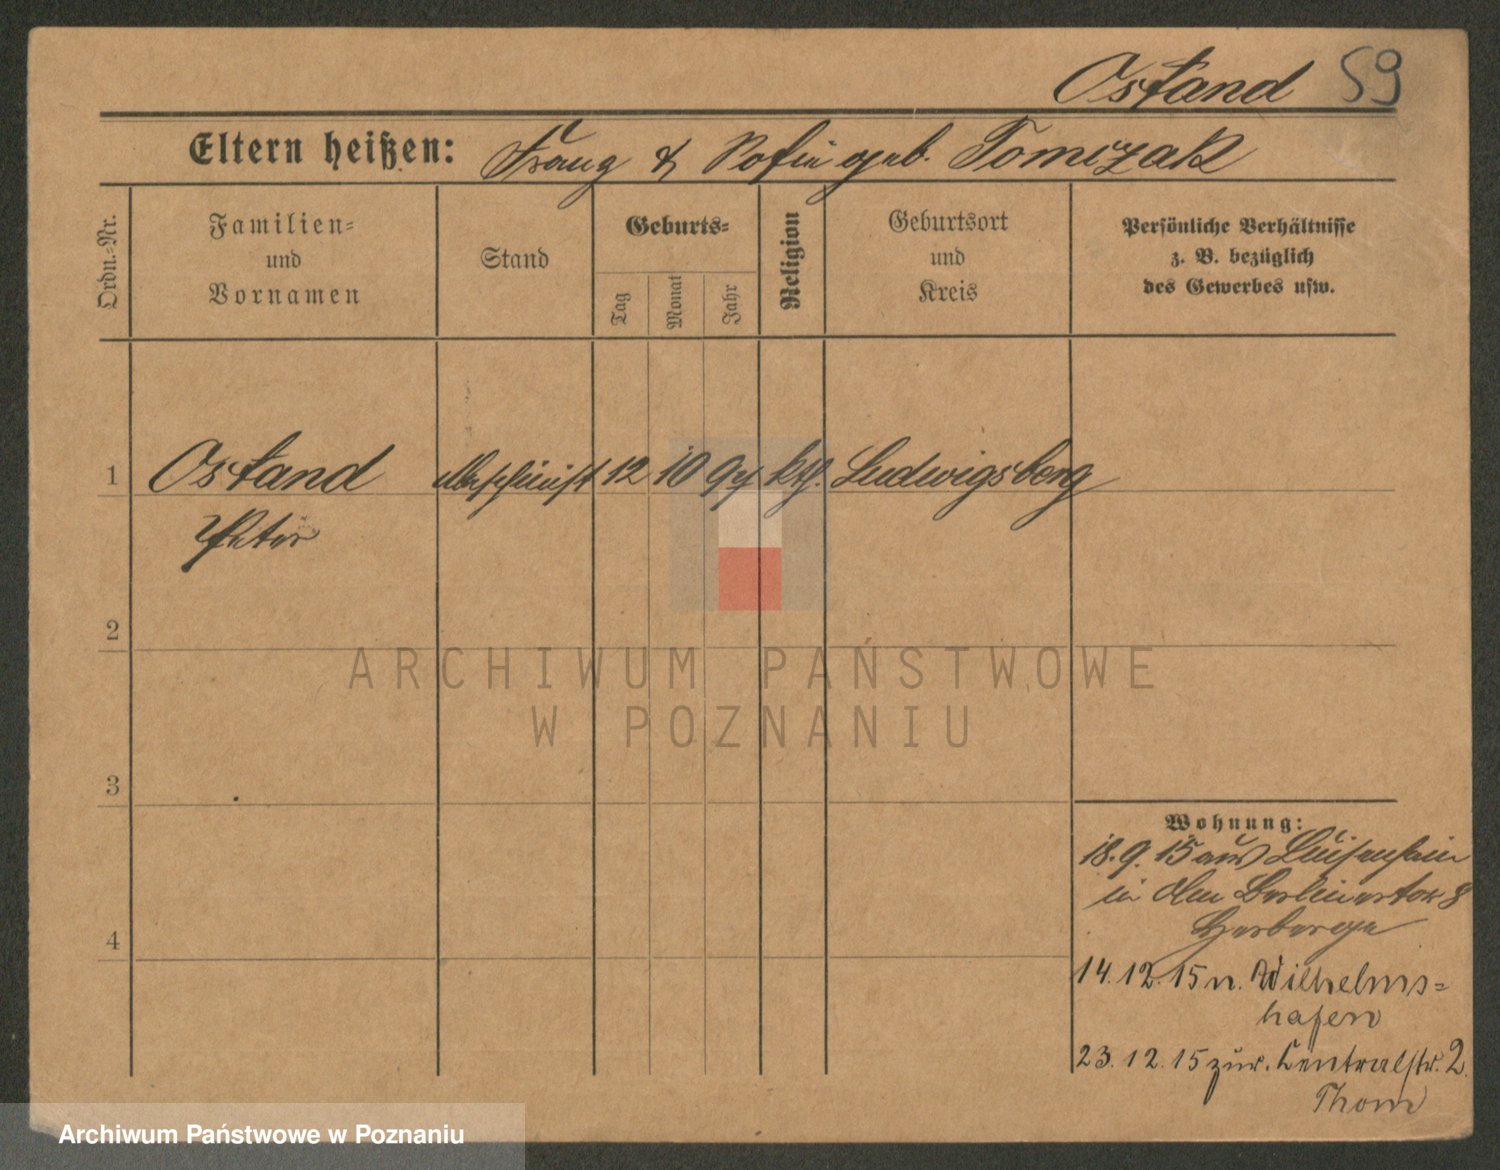 Ostand 59
Eltern heißen: Franz & Sofie geb. Tomczak
Ordn.=Nr.
Familien=
und
Vornamen
Stand
Geburts=
Tag
Monat
Jahr
Religion
Geburtsort
und
Kreis
Persönliche Verhältnisse
z. B. bezüglich
des Gewerbes usw.
1 Ostand 12 10 94 kth. Ludwigsberg
2
3
4
Wohnung:
18. 9. 15 aus Luisenhain
in Berlinertor 8
Herberge
14. 12. 15 n. Wilhelms=
hafen
23. 12. 15 zur. Centralstr. 2.
Thom
ARCHIWUM PAŃSTWOWE
W POZNANIU
Archiwum Państwowe w Poznaniu